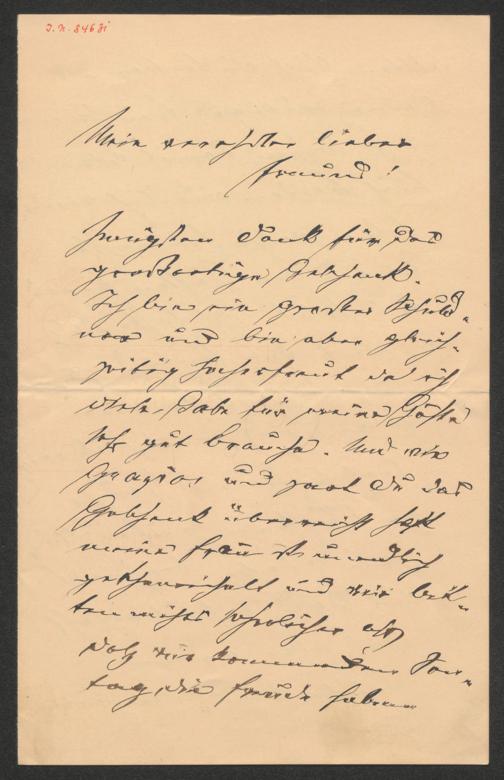 J. N. 8468i
Mein verehrter lieber
Freund!
Innigsten Dank für das
großartige Geschenk.
Ich bin ein großer Schuld-
ner und bin aber gleich-
zeitig hocherfreut da ich
diese Gabe für meine Gäste
sehr gut brauche. Und wie
graziös und zart Du das
Geschenk überreicht hast
meine Frau ist unendlich
geschmeichelt und wir
ten nichts als
daß wir kommenden Son-
tag die Freude haben